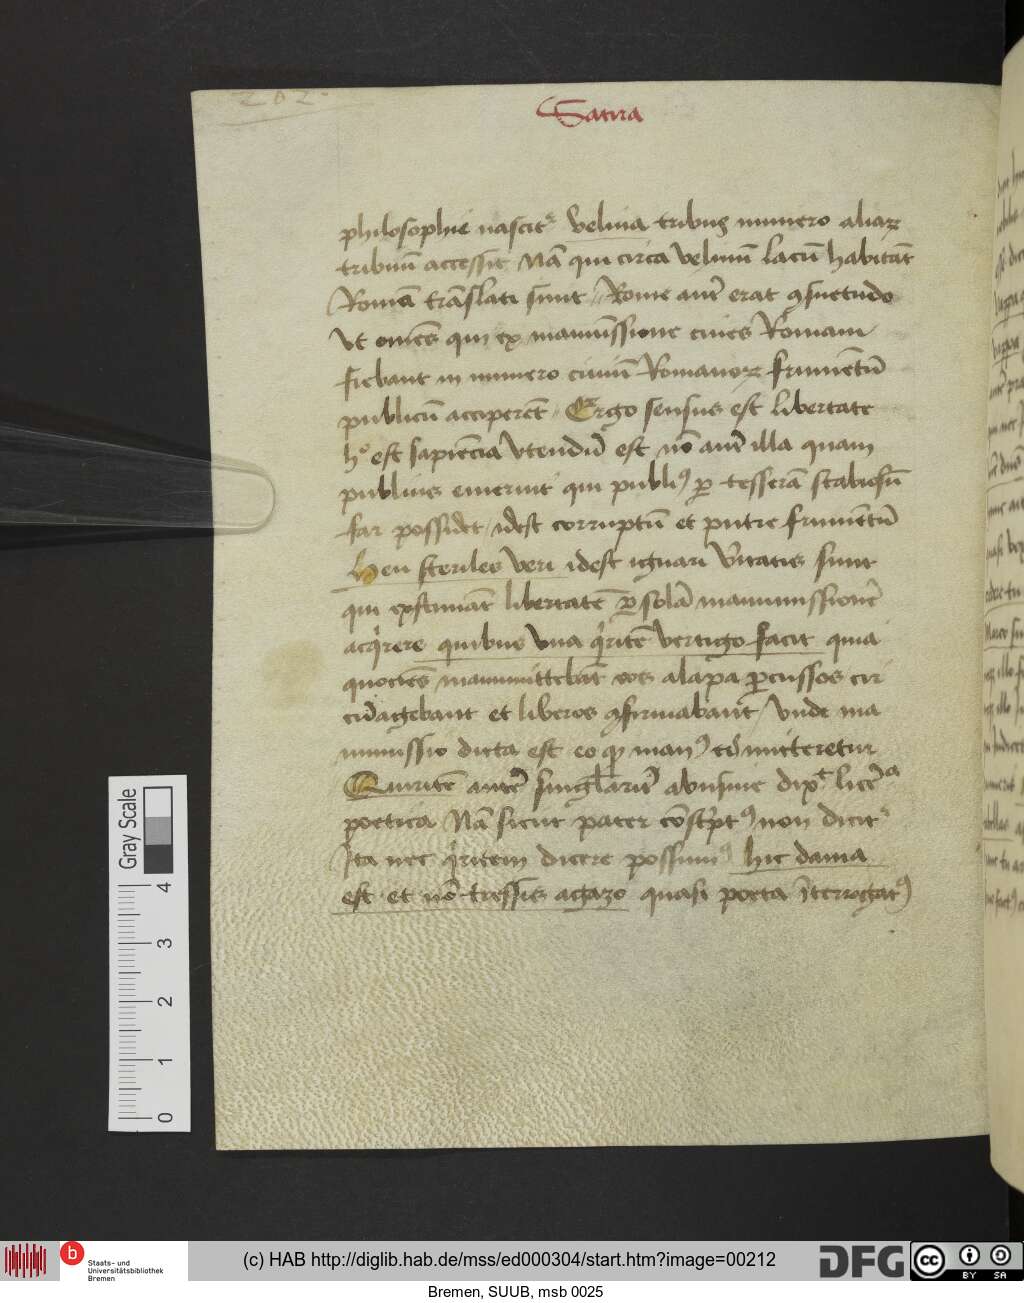 202
Satira
philosophie nascit᷑ velina tribus numero aliaꝝ
tribuū accessit Nā qui circa velinū lacū habitāt
Romā trāslati sunt / Rome aut̄ erat ꝯsuetudo
Vt om̄es qui ex manumissione ciues Romani
fiebant in numero ciuiū Romanoꝝ frumētū
publicū acciperēt Ergo sensus est libertate
hͦ est sapiēcia vtendū est nō aut̄ illa quam
publius emeruit qui publiꝰ ꝑ tesserā scabiosū
far possidet / idest corruptū et putre frumētū
Heu steriles veri idest ignari v̄itatis sunt
qui existimāt libertatē ꝑ solā manumissionē
acq̄rere quibus vna q̄ritē vertigo facit quia
quociēs manumittebāt eos alapa ꝑcussos cir
cūagebant et liberos ꝯfirmabant / vnde ma
numissio dicta est eo ꝙ manꝰ mitteretur
Quiritē autē singlarit̄ abusiue dixͭ licēcia
poetica Nā sicut pater cōscptꝰ non dicit᷑
Ita nec q̄ritem dicere possumꝰ hic dama
est · et nō tressis agazo quasi poeta īterrogatꝰ
Gray Scale
4
3
2
1
0
b
Staats- und
Universitätsbibliothek
Bremen
(c) HAB http://diglib.hab.de/mss/ed000304/start.htm?image=00212
DFG
cc
BY SA
Bremen, SUUB, msb 0025